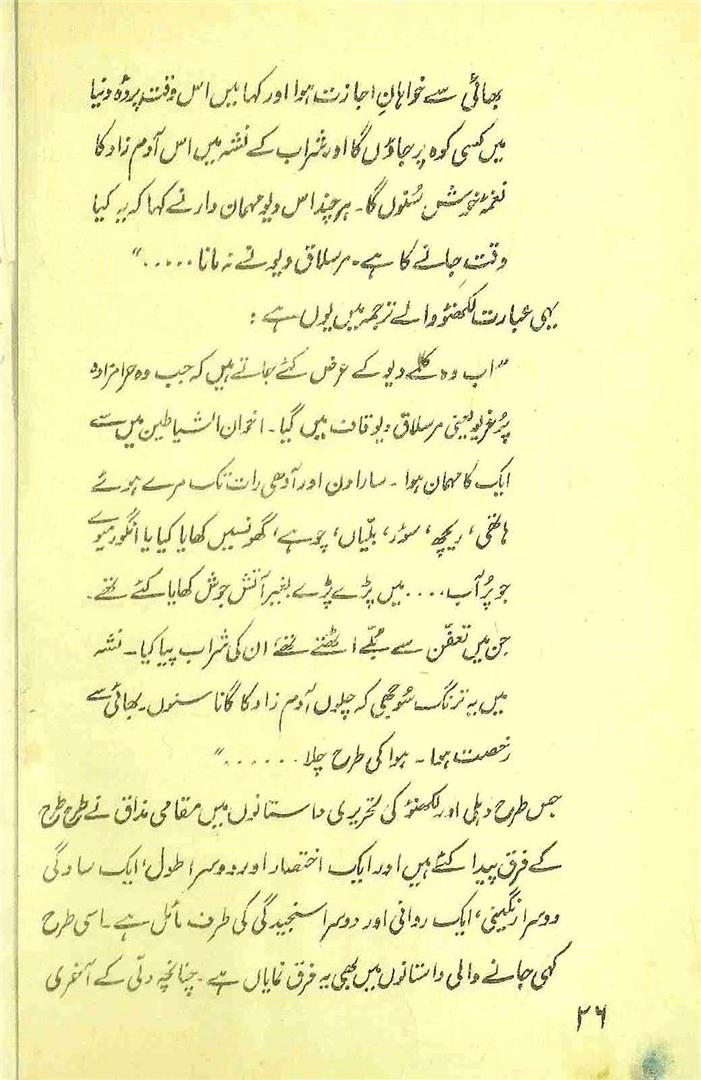 بھائی سے خواہانِ اجازت ہوا اور کہا میں اس وقت پردۂ دنیا
میں کسی کوہ پر جاؤں گا اور شراب کے نشہ میں اس آدم زاد کا
نغمۂ خوش سُنوں گا۔ ہر چند اس دیو مہمان دار نے کہا کہ یہ کیا
وقت جانے کا ہے۔ مرسلاق دیو نے نہ مانا ....."
یہی عبارت لکھنؤ والے ترجمہ میں یوں ہے :
"اب وہ کلمے دیو کے عرض کئے جاتے ہیں کہ جب وہ حرامزادہ
پُر غریو یعنی مرسلاق دیو قاف میں گیا۔ اخوان الشیاطین میں سے
ایک کا مہمان ہوا۔ سارا دن اور آدھی رات تک مرے ہوئے
ہاتھی، ریچھ، سوٗر، بلّیاں، چوہے، گھونسیں کھایا کیا یا انگور میوے
جو پُر آب .... میں پڑے پڑے بغیر آتش جوش کھایا کئے تھے۔
جن میں تعفّن سے بُکّے اٹھتے تھے، ان کی شراب پیا کیا۔ نشہ
میں یہ ترنگ سُوجھی کہ چلوں آدم زاد کا گانا سنوں۔ بھائی سے
رخصت ہوا۔ ہوا کی طرح چلا ......"
جس طرح دہلی اور لکھنؤ کی تحریری داستانوں میں مقامی مذاق نے طرح طرح
کے فرق پیدا کئے ہیں اور ایک اختصار اور دوسرا طول، ایک سادگی
دوسرا رنگینی، ایک روانی اور دوسرا سنجیدگی کی طرف مائل ہے۔ اسی طرح
کہی جانے والی داستانوں میں بھی یہ فرق نمایاں ہے۔ چنانچہ دلّی کے آخری
۲۶